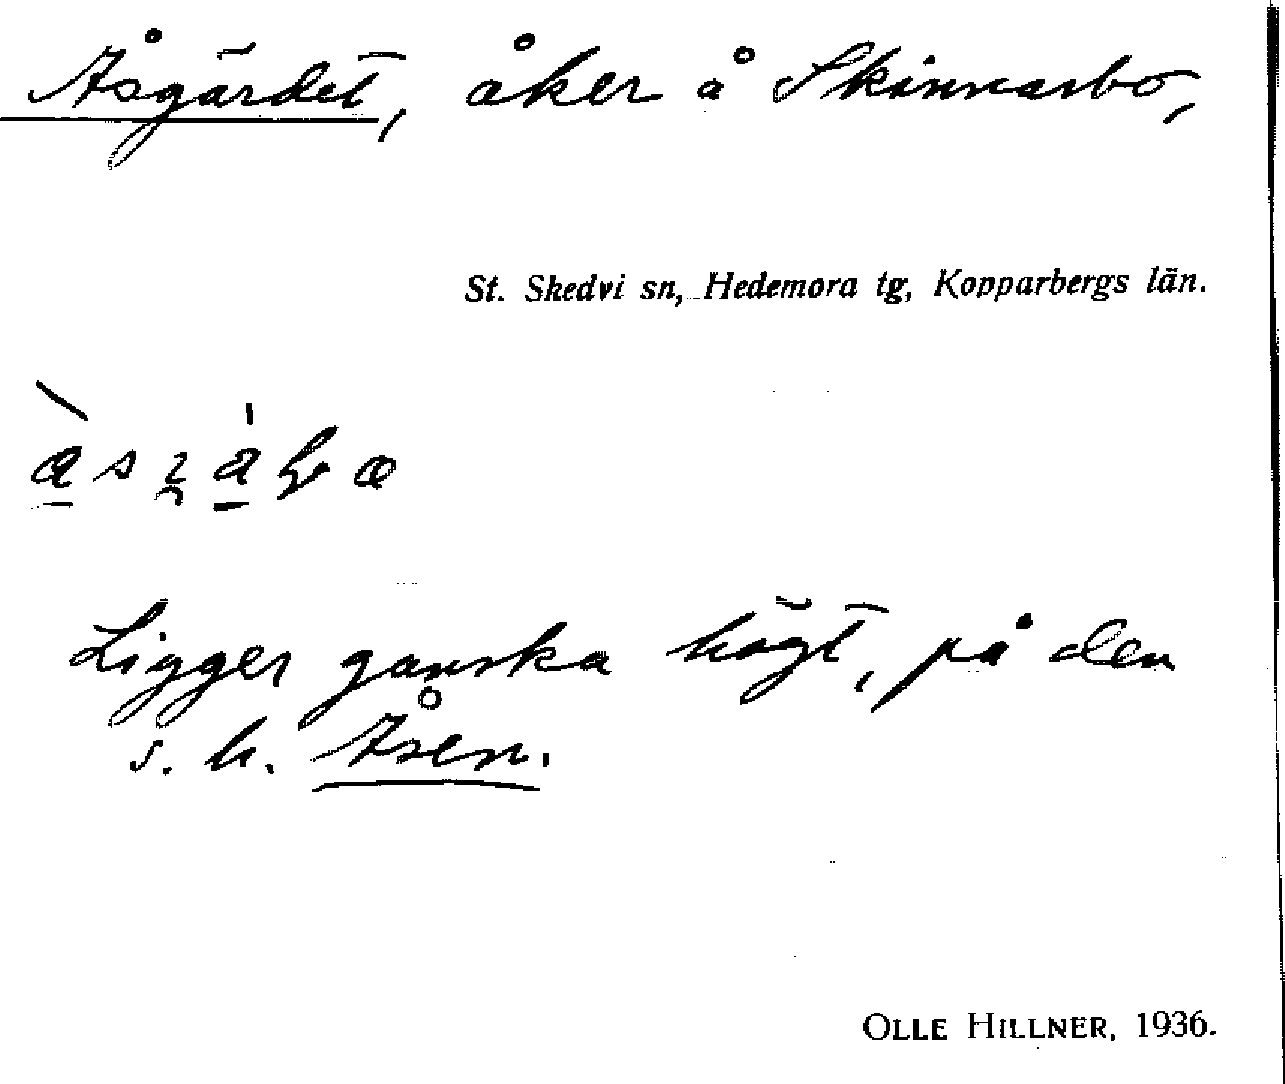 Åsgärdet, åker å Skinnarbo,
St. Skedvi sn, Hedemora tg, Kopparbergs län.
Ligger ganska högt, på den
s. k. Åsen.
OLLE HILLNER, 1936.